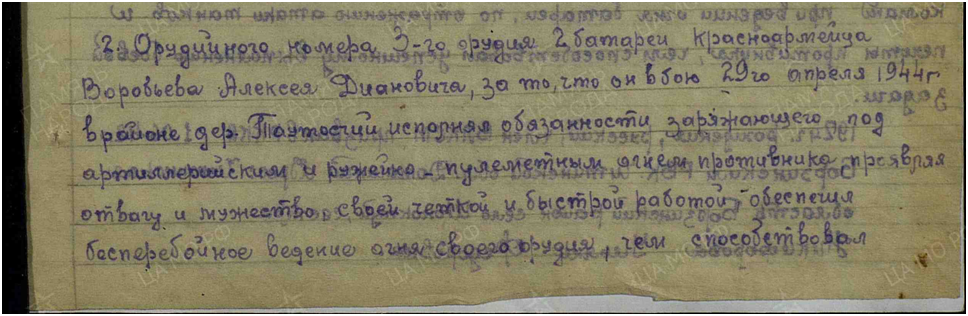 2. Орудийного номера 3-го орудия 2 батареи Красноармейца
Воробьева Алексея Диановича, за то, что он в бою 29го апреля 1944г.
в районе дер. исполняя обязанности заряжающего под
артиллерийским и ружейно-пулеметным огнем противника проявляя
отвагу и мужество своей четкой и быстрой работой обеспечил
бесперебойное ведение огня своего орудия, чем способствовал